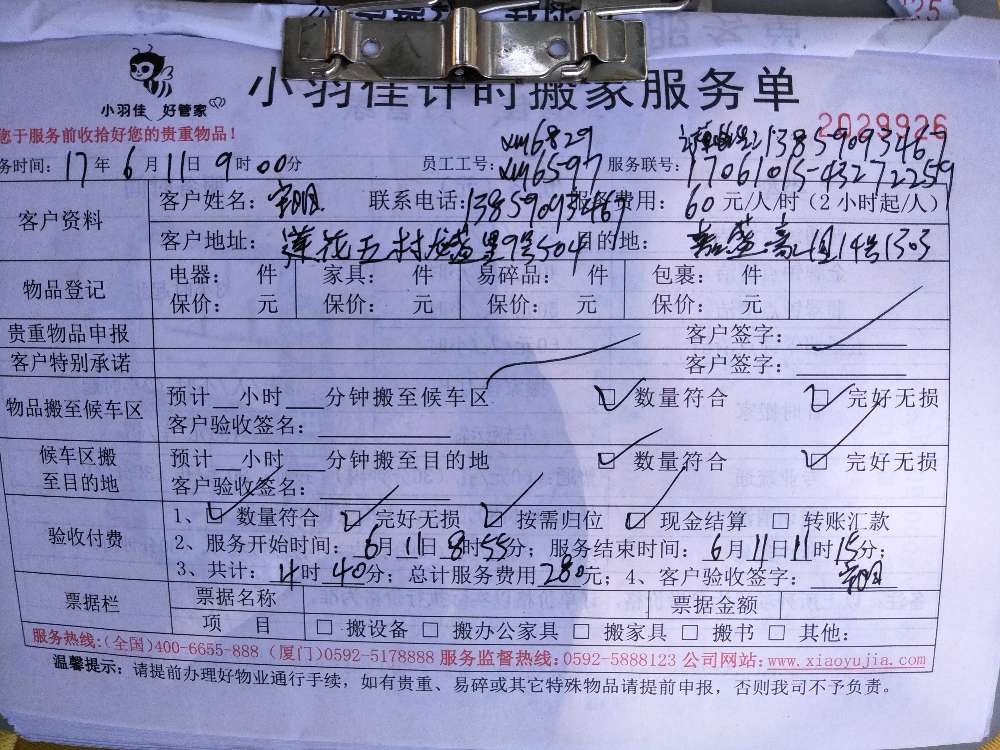 小羽佳 好管家
小羽佳计时搬家服务单
您于服务前收拾好您的贵重物品！
2029926
务时间：17年6月11日9时00分 员工工号：xm6829 xm6597 服务联号：13859093467
17061015-43272259
客户资料
客户姓名： 联系电话：13859093467 服务费用：60元/人/时（2小时起/人）
客户地址：莲花五村龙盛里9号504 目的地：嘉盛豪园14号1303
物品登记
电器： 件 家具： 件 易碎品： 件 包裹： 件
保价： 元 保价： 元 保价： 元 保价： 元
贵重物品申报 客户签字：
客户特别承诺 客户签字：
物品搬至候车区
预计__小时___分钟搬至候车区 ☑ 数量符合 ☑ 完好无损
客户验收签名：
候车区搬至目的地
预计__小时___分钟搬至目的地 ☑ 数量符合 ☑ 完好无损
客户验收签名：
验收付费
1、☑ 数量符合 ☑ 完好无损 ☑ 按需归位 ☑ 现金结算 □ 转账汇款
2、服务开始时间：6月11日8时55分；服务结束时间：6月11日11时15分；
3、共计：4时40分；总计服务费用280元；4、客户验收签字：
票据栏
票据名称 票据金额
项 目 □ 搬设备 □ 搬办公家具 □ 搬家具 □ 搬书 □ 其他：
服务热线:(全国)400-6655-888（厦门)0592-5178888 服务监督热线:0592-5888123 公司网站:www.xiaoyujia.com
温馨提示：请提前办理好物业通行手续，如有贵重、易碎或其它特殊物品请提前申报，否则我司不予负责。